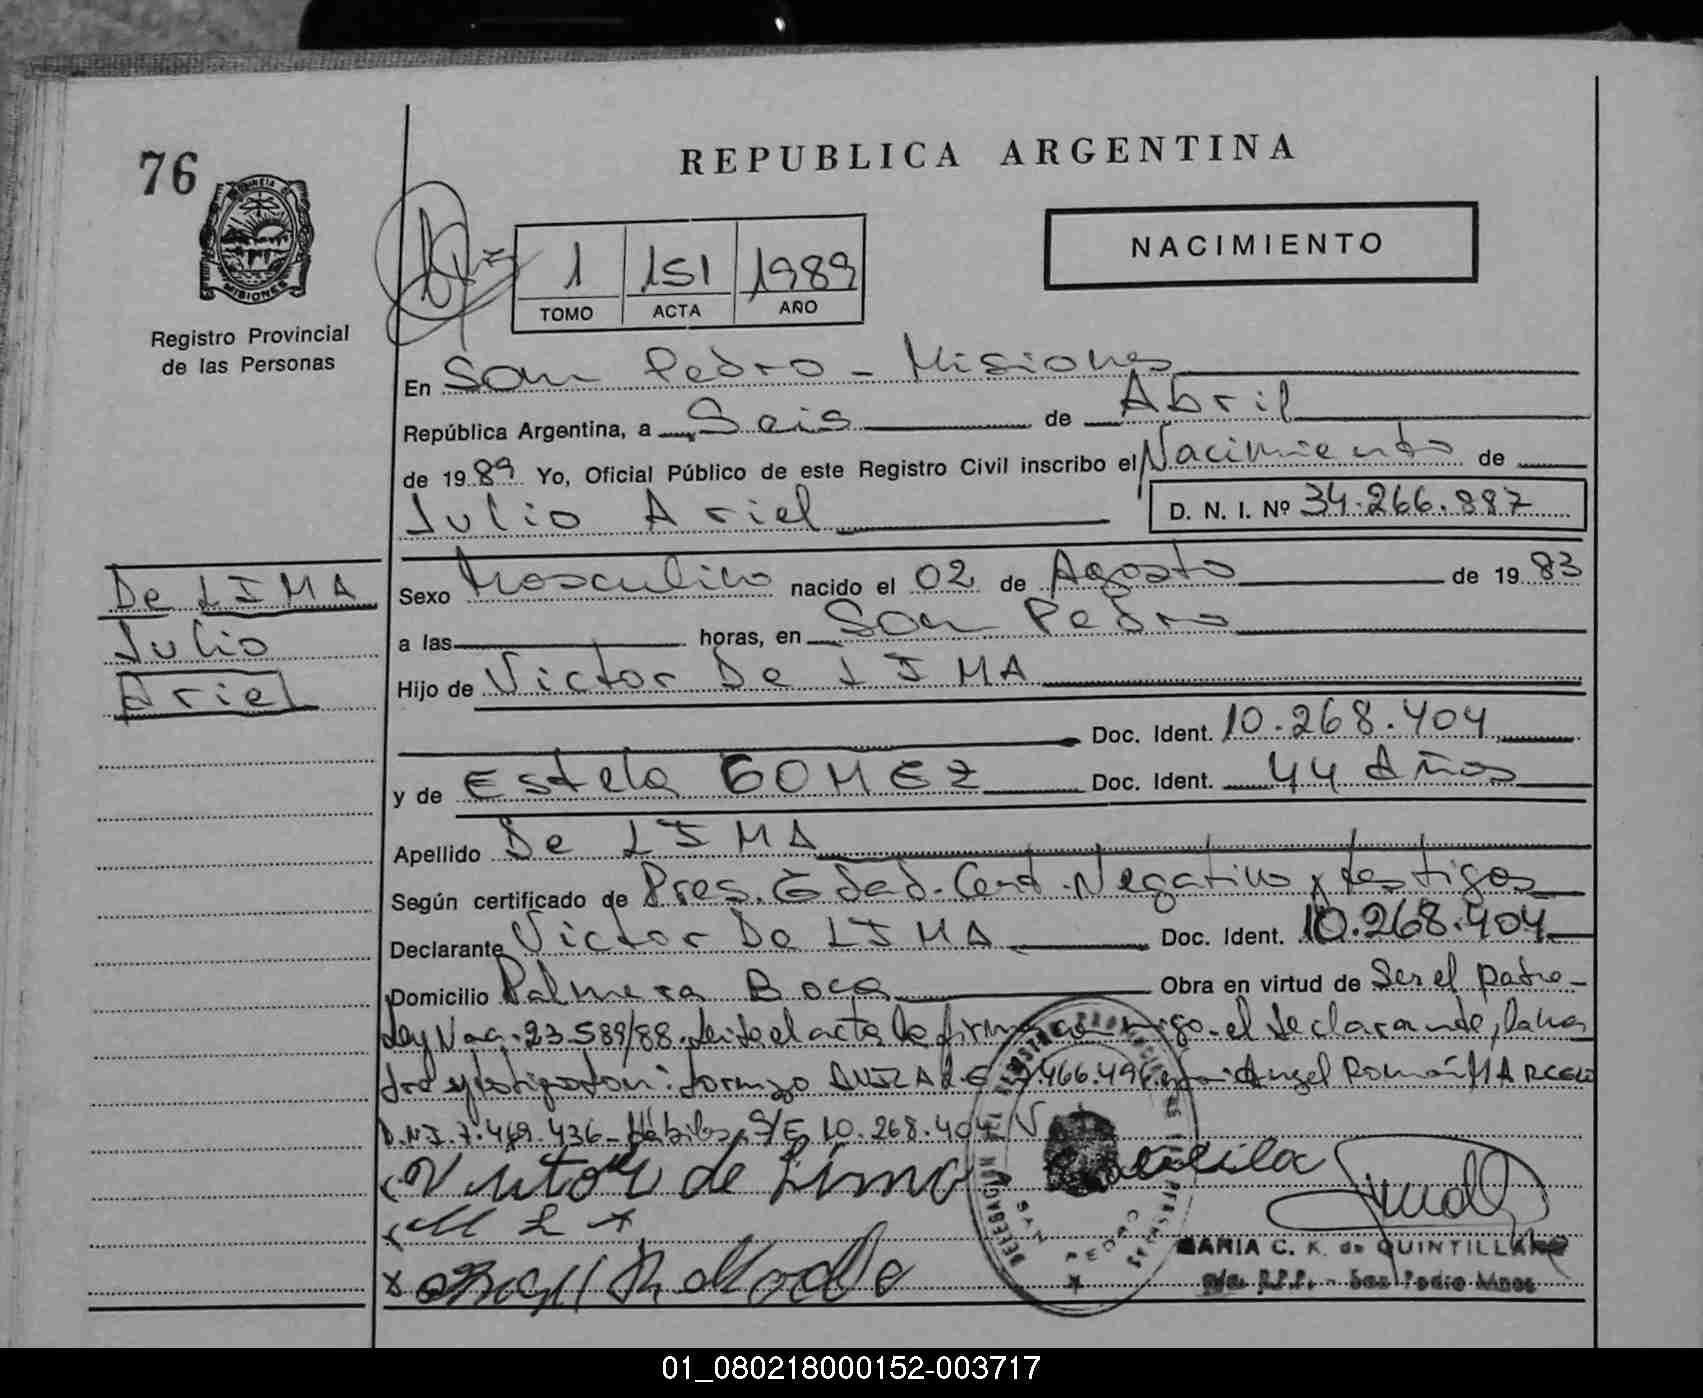 76
REPUBLICA ARGENTINA
PROVINCIA DE MISIONES
Registro Provincial
de las Personas
1 151 1989
TOMO ACTA AÑO
NACIMIENTO
En San Pedro - Misiones
República Argentina, a Seis de Abril
de 1989 Yo, Oficial Público de este Registro Civil inscribo el Nacimiento de
Julio Ariel D. N. I. Nº 34.266.887
De LIMA
Julio
Ariel
Sexo Masculino nacido el 02 de Agosto de 1983
a las horas, en San Pedro
Hijo de Victor De LIMA
Doc. Ident. 10.268.404
y de Estela GOMEZ Doc. Ident. 44 Años
Apellido De LIMA
Según certificado de Pres. Edad. Cert. Negativo y testigos
Declarante Victor De LIMA Doc. Ident. 10.268.404
Domicilio Palmera Boca Obra en virtud de Ser el padre-
Ley Nac. 23.589/88. Leída el acta la firma conmigo el declarante, la
y testigos Don: Lorenzo 7.466.496 Angel Román MARCELO
D.N.I. 7.469.436- S/E 10.268.404 V
Victor de Lima
DELEGACION SAN PEDRO
MARIA C. K. de QUINTILLAN
R.P.P. - San Pedro Mnes
01_080218000152-003717